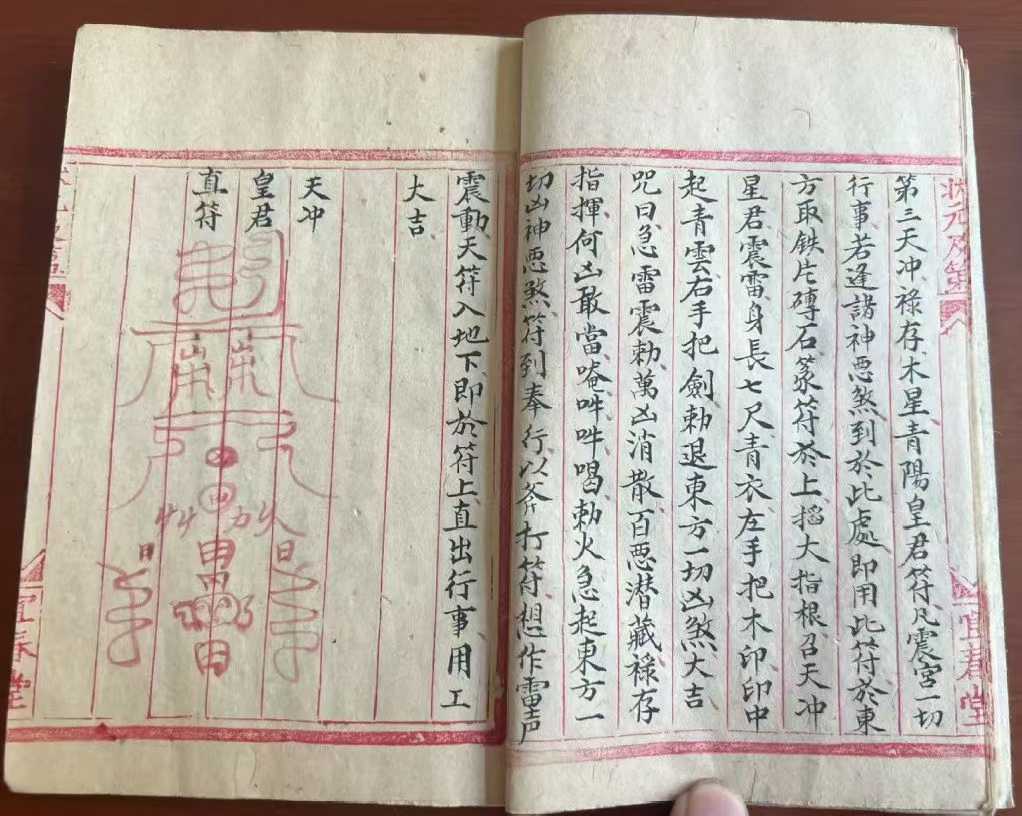 第三天冲禄存木星青陽皇君符凡震宮一切
行事若逢諸神悪煞到於此處即用此符於東
方取铁片磚石篆符於上掐大指根召天冲
星君震雷身長七尺青衣左手把木印印中
起青雲右手把劍勅退東方一切凶煞大吉
咒曰急雷震勅萬凶消散百悪潜藏禄存
指揮何凶敢當唵吽吽喝勅火急起東方一
切凶神悪煞符到奉行以斧打符想作雷声
震動天符入地下即於符上直出行事用工
大吉
天冲
皇君
直符
日
日
狀元及第
宜春堂
宜春堂